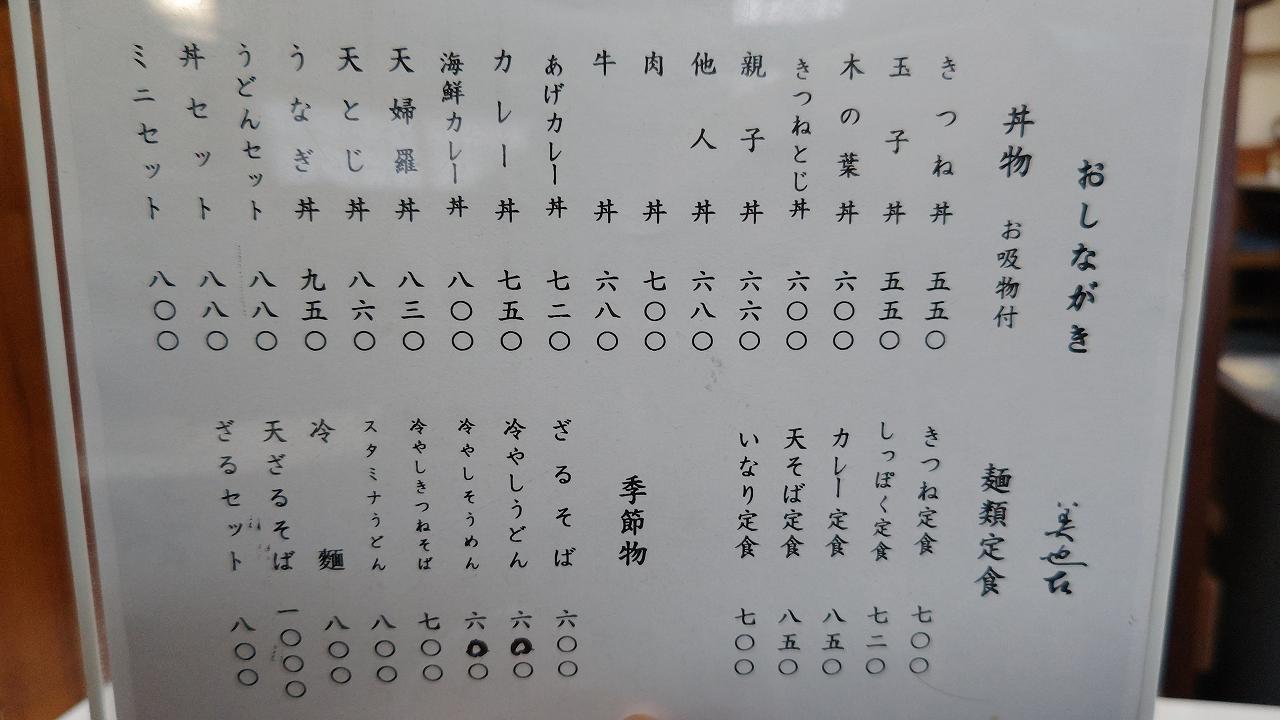 おしながき
丼物 お吸物付
きつね丼 五五〇
玉子丼 五五〇
木の葉丼 六〇〇
きつねとじ丼 六〇〇
親子丼 六六〇
他人丼 六八〇
肉丼 七〇〇
牛丼 六八〇
あげカレー丼 七二〇
カレー丼 七五〇
海鮮カレー丼 八〇〇
天婦羅丼 八三〇
天とじ丼 八六〇
うなぎ丼 九五〇
うどんセット 八八〇
丼セット 八八〇
ミニセット 八〇〇
麺類定食
きつね定食 七〇〇
しっぽく定食 七二〇
カレー定食 八五〇
天そば定食 八五〇
いなり定食 七〇〇
季節物
ざるそば 六〇〇
冷やしうどん 六〇〇
冷やしそうめん 六〇〇
冷やしきつねそば 七〇〇
スタミナうどん 八〇〇
冷麵 八〇〇
天ざるそば 一〇〇〇
ざるセット 八〇〇